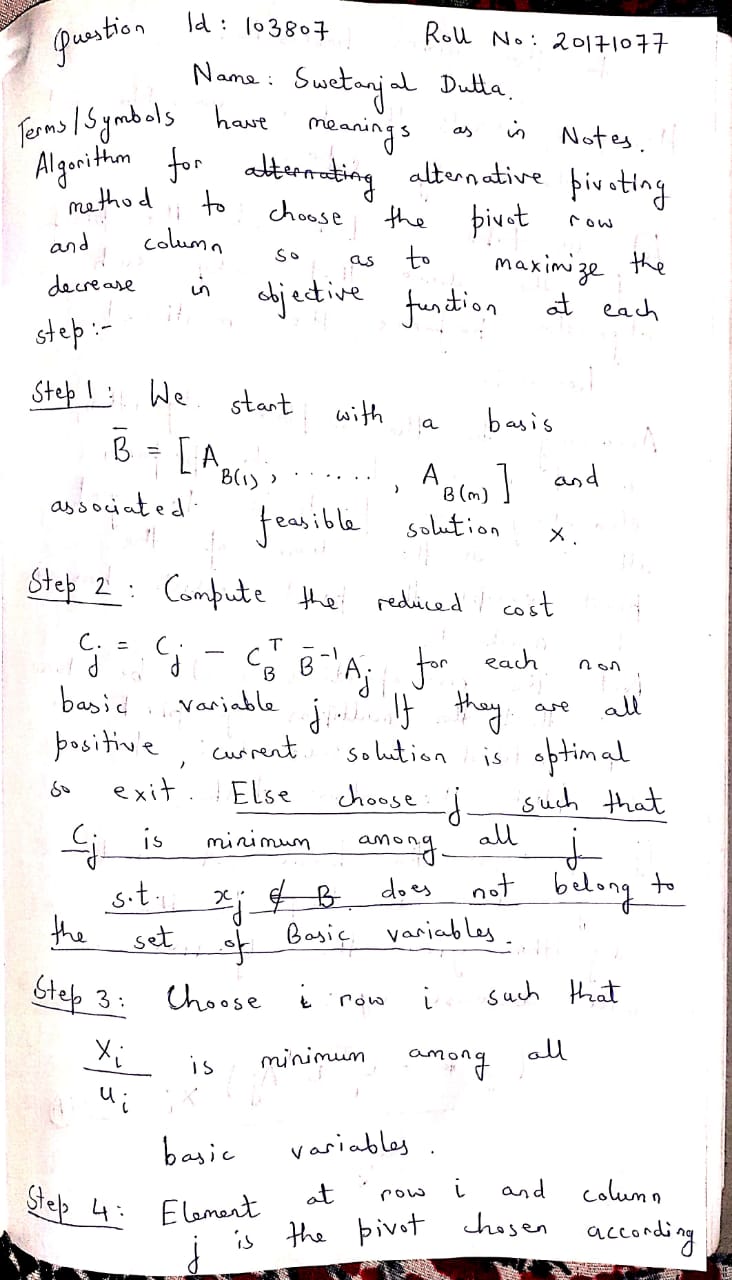 Question Id : 103807 Roll No : 20171077
Name : Swetanjal Dutta.
Terms/Symbols have meanings as in Notes.
Algorithm for alternating alternative pivoting
method to choose the pivot row
and column so as to maximize the
decrease in objective function at each
step :-
Step 1 : We start with a basis
B̄ = [ A_B(1) , ...... , A_B(m) ] and
associated feasible solution x.
Step 2 : Compute the reduced cost
C_j = C_j - C_B^T B̄^-1 A_j for each non
basic variable j. If they are all
positive, current solution is optimal
so exit. Else choose j such that
C_j is minimum among all j
s.t. x_j ∉ B does not belong to
the set of Basic variables.
Step 3 : Choose i row i such that
x_i / u_i is minimum among all
basic variables.
Step 4 : Element at row i and column
j is the pivot chosen according